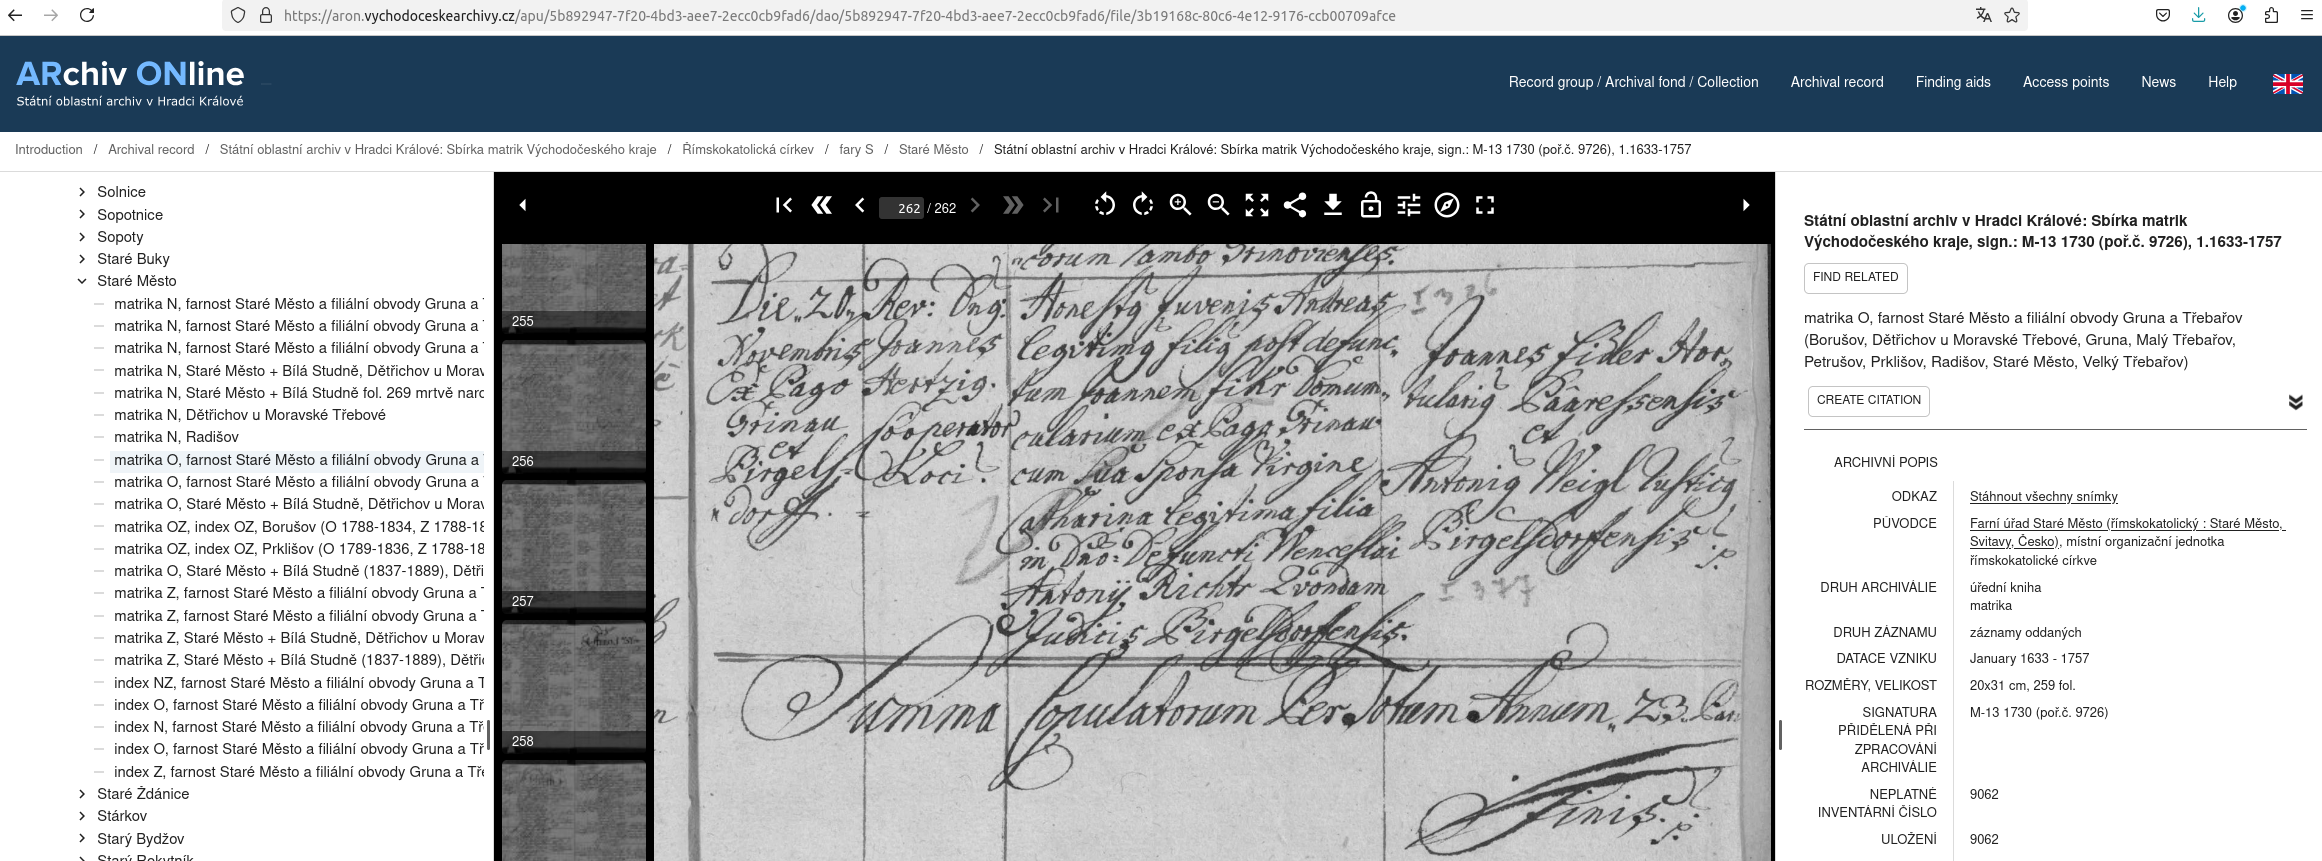 https://aron.vychodoceskearchivy.cz/apu/5b892947-7f20-4bd3-aee7-2ecc0cb9fad6/dao/5b892947-7f20-4bd3-aee7-2ecc0cb9fad6/file/3b19168c-80c6-4e12-9176-ccb00709afce
ARchiv ONline
Státní oblastní archiv v Hradci Králové
Record group / Archival fond / Collection
Archival record
Finding aids
Access points
News
Help
Introduction / Archival record / Státní oblastní archiv v Hradci Králové: Sbírka matrik Východočeského kraje / Římskokatolická církev / fary S / Staré Město / Státní oblastní archiv v Hradci Králové: Sbírka matrik Východočeského kraje, sign.: M-13 1730 (poř.č. 9726), 1.1633-1757
Solnice
Sopotnice
Sopoty
Staré Buky
Staré Město
matrika N, farnost Staré Město a filiální obvody Gruna a
matrika N, farnost Staré Město a filiální obvody Gruna a
matrika N, farnost Staré Město a filiální obvody Gruna a
matrika N, Staré Město + Bílá Studně, Dětřichov u Morav
matrika N, Staré Město + Bílá Studně fol. 269 mrtvě naro
matrika N, Dětřichov u Moravské Třebové
matrika N, Radišov
matrika O, farnost Staré Město a filiální obvody Gruna a
matrika O, farnost Staré Město a filiální obvody Gruna a
matrika O, Staré Město + Bílá Studně, Dětřichov u Morav
matrika OZ, index OZ, Borušov (O 1788-1834, Z 1788-18
matrika OZ, index OZ, Prklišov (O 1789-1836, Z 1788-18
matrika O, Staré Město + Bílá Studně (1837-1889), Dětři
matrika Z, farnost Staré Město a filiální obvody Gruna a
matrika Z, farnost Staré Město a filiální obvody Gruna a
matrika Z, Staré Město + Bílá Studně, Dětřichov u Morav
matrika Z, Staré Město + Bílá Studně (1837-1889), Dětři
index NZ, farnost Staré Město a filiální obvody Gruna a T
index O, farnost Staré Město a filiální obvody Gruna a Tř
index N, farnost Staré Město a filiální obvody Gruna a Tř
index O, farnost Staré Město a filiální obvody Gruna a Tř
index Z, farnost Staré Město a filiální obvody Gruna a Tře
Staré Ždánice
Stárkov
Starý Bydžov
Starý Rokytník
262 / 262
255
256
257
258
corum Grinovienses.
Die 20
Novembris
Ex Pago
Grinau
et
Pirgels=
dorff.
Rev: Dng:
Joannes
Hertzig.
Cooperator
Loci.
Honestg Juvenis Andreas
legitimg filig post defunc,
tum Joannem finr Domun=
cularium ex Pago Grinau
cum sua Sponsa Virgine
Catharina legitima filia
in Dno: Defuncti Wenceslai
Antonij Richtr Quondam
Judicis Pirgelsdorffensis.
I 376
Joannes fider Hor,
tularig
et
Antonig Weigl Rusticg
Pirgelsdorffensis
I 377
Summa Copulatorum Per Totum Annum 23 Par
Finis.
Státní oblastní archiv v Hradci Králové: Sbírka matrik
Východočeského kraje, sign.: M-13 1730 (poř.č. 9726), 1.1633-1757
FIND RELATED
matrika O, farnost Staré Město a filiální obvody Gruna a Třebařov
(Borušov, Dětřichov u Moravské Třebové, Gruna, Malý Třebařov,
Petrušov, Prklišov, Radišov, Staré Město, Velký Třebařov)
CREATE CITATION
ARCHIVNÍ POPIS
ODKAZ
Stáhnout všechny snímky
PŮVODCE
Farní úřad Staré Město (římskokatolický : Staré Město,
Svitavy, Česko), místní organizační jednotka
římskokatolické církve
DRUH ARCHIVÁLIE
úřední kniha
matrika
DRUH ZÁZNAMU
záznamy oddaných
DATACE VZNIKU
January 1633 - 1757
ROZMĚRY, VELIKOST
20x31 cm, 259 fol.
SIGNATURA
PŘIDĚLENÁ PŘI
ZPRACOVÁNÍ
ARCHIVÁLIE
M-13 1730 (poř.č. 9726)
NEPLATNÉ
INVENTÁRNÍ ČÍSLO
9062
ULOŽENÍ
9062